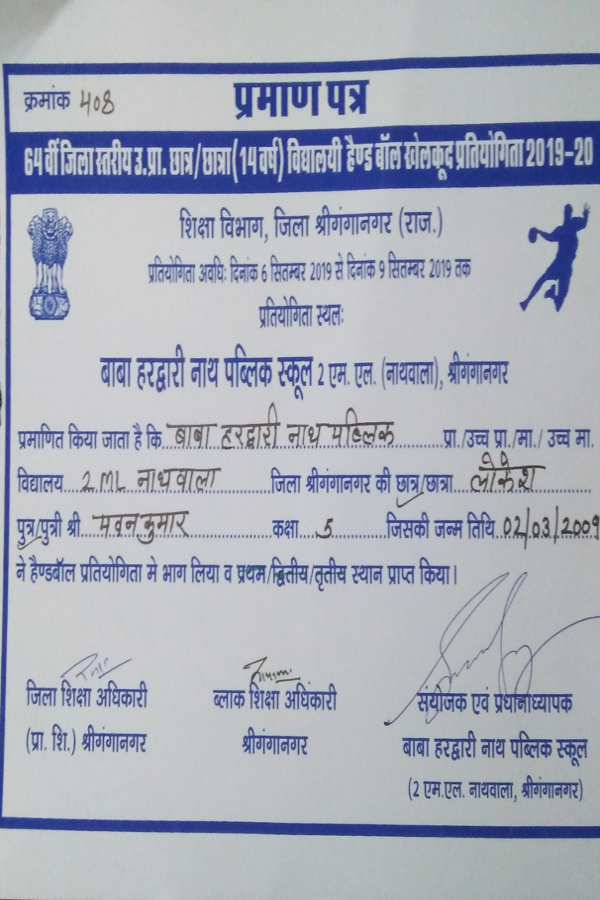 क्रमांक 408
प्रमाण पत्र
64 वीं जिला स्तरीय उ.प्रा. छात्र/छात्रा(14 वर्ष) विद्यालयी हैण्ड बॉल खेलकूद प्रतियोगिता 2019-20
शिक्षा विभाग, जिला श्रीगंगानगर (राज.)
प्रतियोगिता अवधिः दिनांक 6 सितम्बर 2019 से दिनांक 9 सितम्बर 2019 तक
प्रतियोगिता स्थलः
बाबा हरद्वारी नाथ पब्लिक स्कूल 2 एम. एल. (नाथवाला), श्रीगंगानगर
प्रमाणित किया जाता है कि बाबा हरद्वारी नाथ पब्लिक प्रा./उच्च प्रा./मा./ उच्च मा.
विद्यालय 2 ML नाथवाला जिला श्रीगंगानगर की छात्र/छात्रा लोकेश
पुत्र/पुत्री श्री पवन कुमार कक्षा 5 जिसकी जन्म तिथि 02/03/2009
ने हैण्डबॉल प्रतियोगिता मे भाग लिया व प्रथम/द्वितीय/तृतीय स्थान प्राप्त किया।
जिला शिक्षा अधिकारी
(प्रा. शि.) श्रीगंगानगर
ब्लाक शिक्षा अधिकारी
श्रीगंगानगर
संयोजक एवं प्रधानाध्यापक
बाबा हरद्वारी नाथ पब्लिक स्कूल
(2 एम.एल. नाथवाला, श्रीगंगानगर)